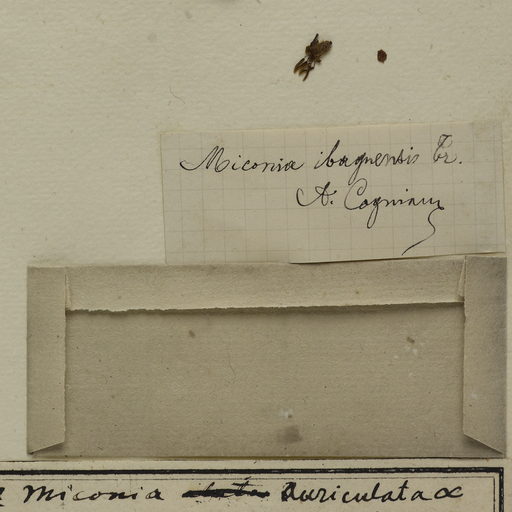 Miconia ibaguensis Tr.
A. Cogniaux
Miconia auriculata α